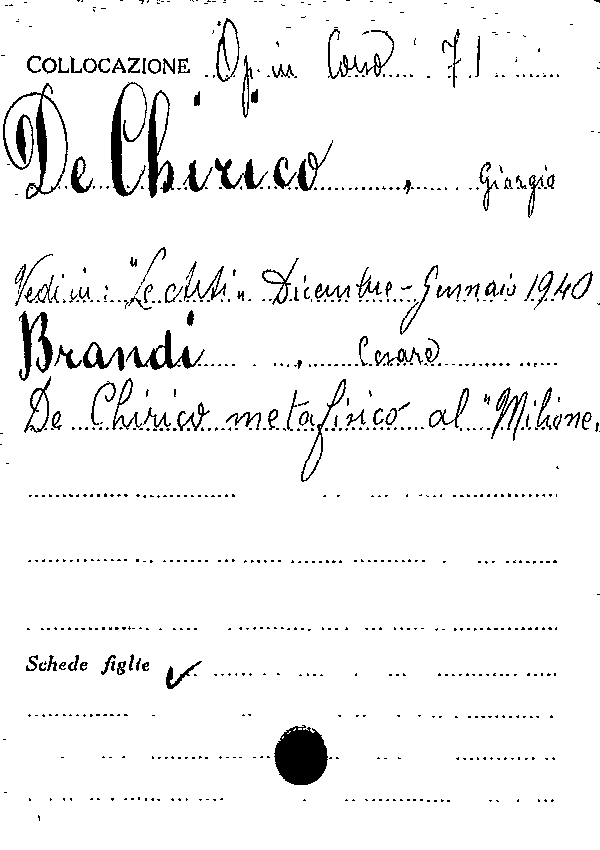 COLLOCAZIONE Op. in Corso 71
De Chirico, Giorgio
Vedi in: "Le Arti" Dicembre - Gennaio 1940
Brandi, Cesare
De Chirico metafisico al "Milione"
Schede figlie ✓